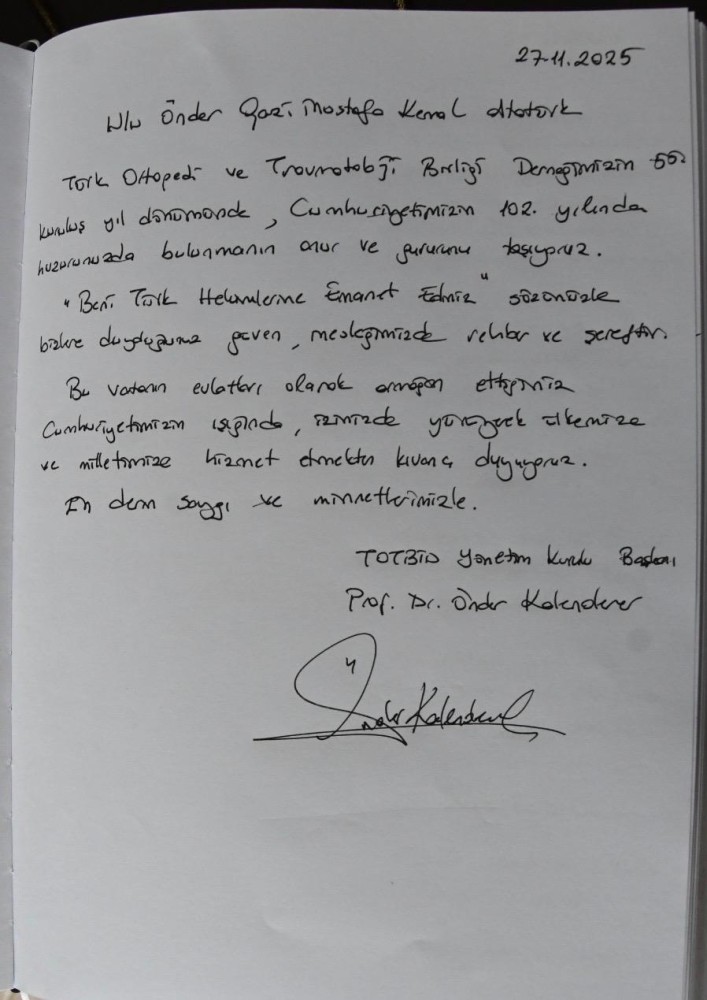 27.11.2025
Ulu Önder Gazi Mustafa Kemal Atatürk
Türk Ortopedi ve Travmatoloji Birliği Derneğimizin 55.
kuruluş yıl dönümünde, Cumhuriyetimizin 102. yılında
huzurunuzda bulunmanın onur ve gururunu taşıyoruz.
"Beni Türk Hekimlerine Emanet Ediniz" sözünüzle
bizlere duyduğunuz güven, mesleğimizde rehber ve şereftir.
Bu vatanın evlatları olarak armağan ettiğiniz
Cumhuriyetimizin ışığında, izinizde yürüyerek ülkemize
ve milletimize hizmet etmekten kıvanç duyuyoruz.
En derin saygı ve minnetlerimizle.
TOTBİD Yönetim Kurulu Başkanı
Prof. Dr. Önder Kalenderer
Önder Kalenderer